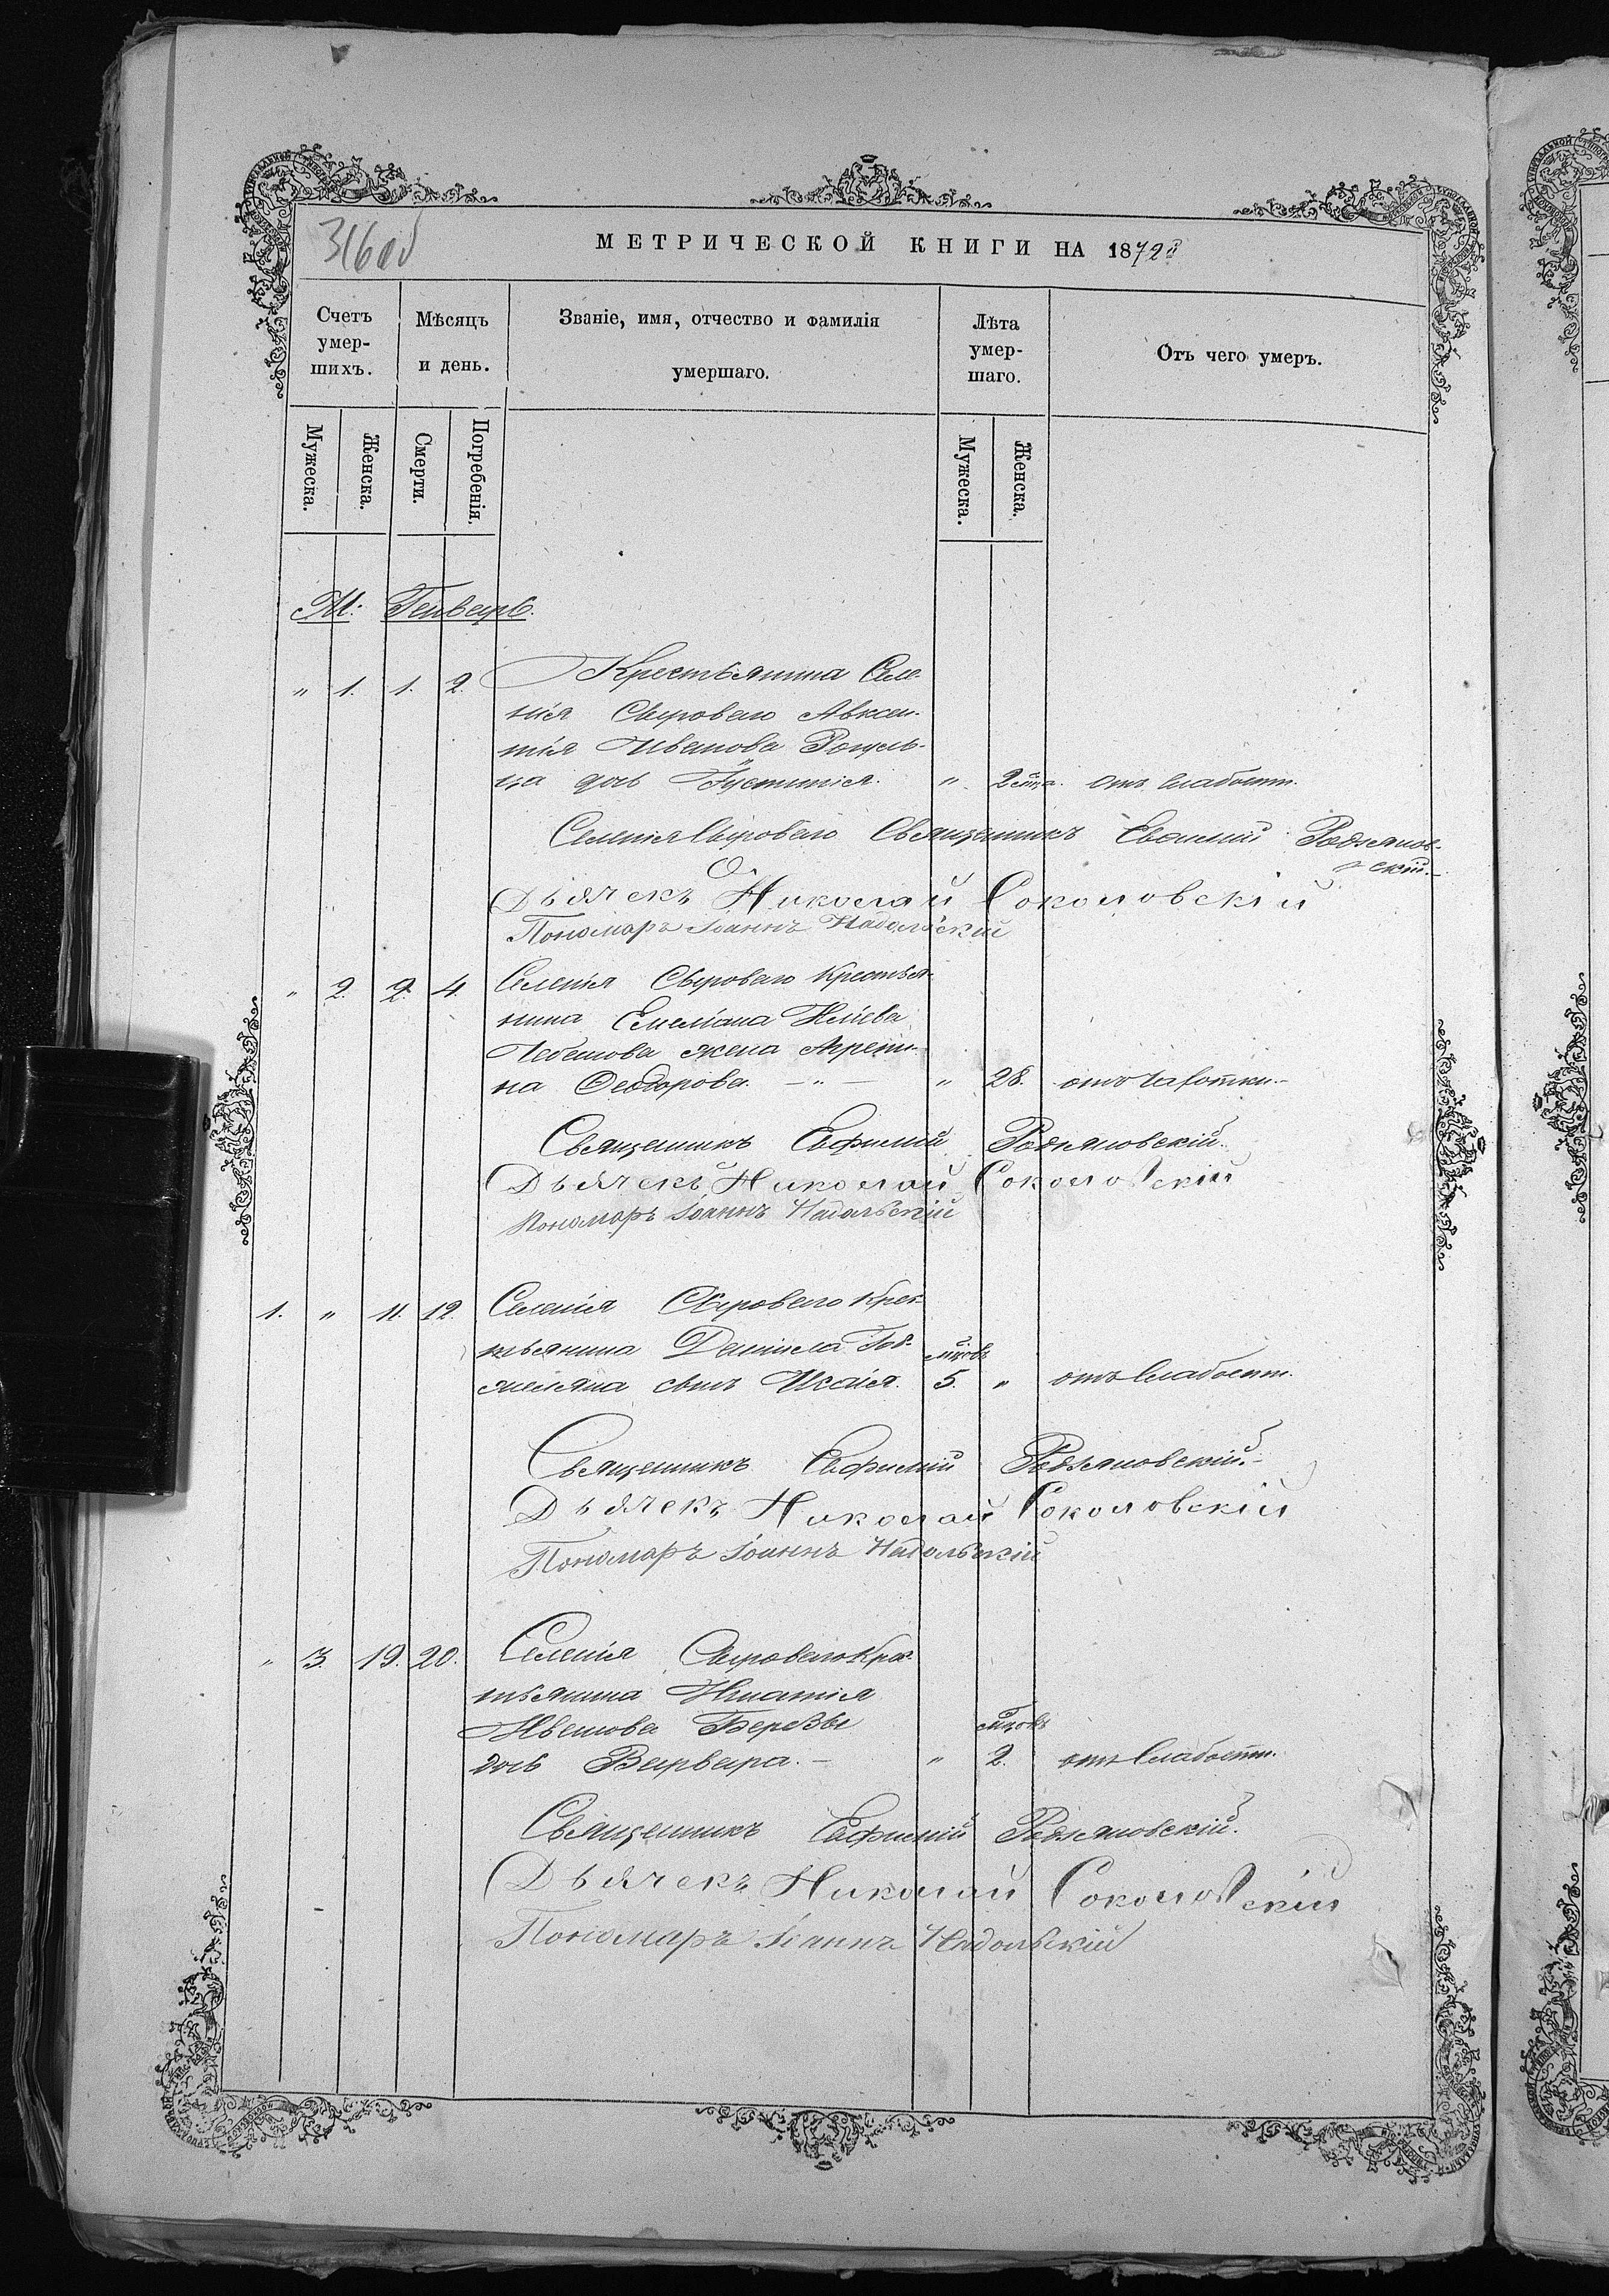 316об
МЕТРИЧЕСКОЙ КНИГИ НА 1872й
Счетъ умер-шихъ.
Мѣсяцъ и день.
Званіе, имя, отчество и фамилія умершаго.
Лѣта умер-шаго.
Отъ чего умеръ.
Мужеска. Женска. Смерти. Погребенія. Мужеска. Женска.
М: Генварь.
" 1. 1. 2. Крестьянина Селе-
нія Сырового Авксен-
тія Иванова
дочь Іустинія. " 2 мца. отъ слабости.
Селенія Сырового Священникъ Евѳимій Родзяков-
скій.
Дьячекъ Николай Соколовскій
Пономарь Іоаннъ Надольскій
" 2. 2. 4. Селенія Сырового Крестья-
нина Емеліана Иліева
жена Агрепи-
на Ѳеодорова. — " — " 28. отъ чахотки.
Священникъ Евфимій Родзяковскій.
Дьячекъ Николай Соколовскій
Пономарь Іоаннъ Надольскій
1. " 11. 12. Селенія Сырового Крес-
тьянина Даніила Гоб-
желяна сынъ Исаія. 5. мцовъ " отъ слабости.
Священникъ Евфимій Родзяковскій.
Дьячекъ Николай Соколовскій
Пономарь Іоаннъ Надольскій
" 3. 19. 20. Селенія Сырового Крес-
тьянина Игнатія
Иванова Березы
дочь Варвара. — " 2. мцовъ отъ слабости.
Священникъ Евфимій Родзяковскій.
Дьячекъ Николай Соколовскій
Пономарь Іоаннъ Надольскій